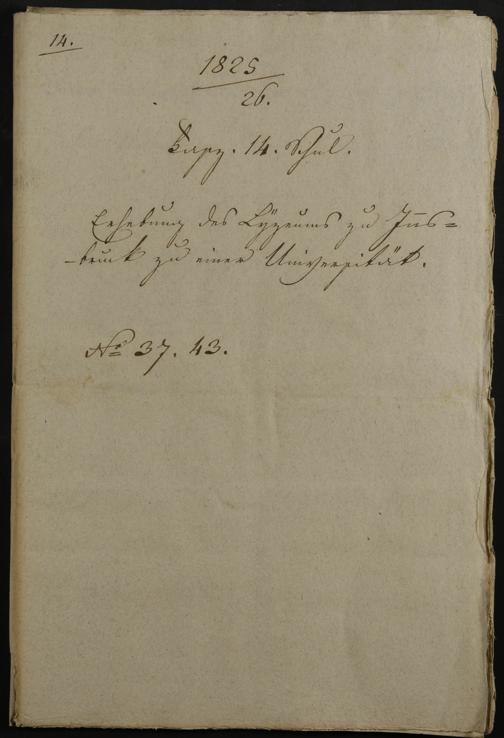 14.
1825
26.
Fasz. 14. Schul.
Erhebung des Lyzeums zu Ins=
=bruck zu einer Universität.
No 37. 43.